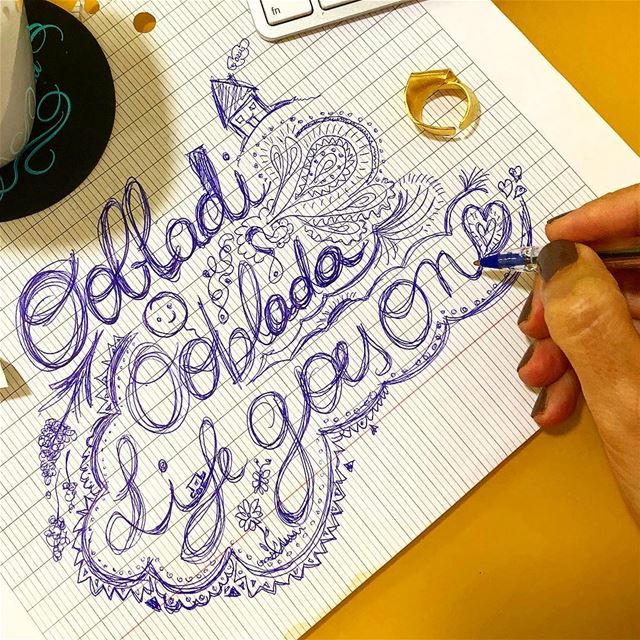 Oobladi
Ooblada
Life goes On
fn